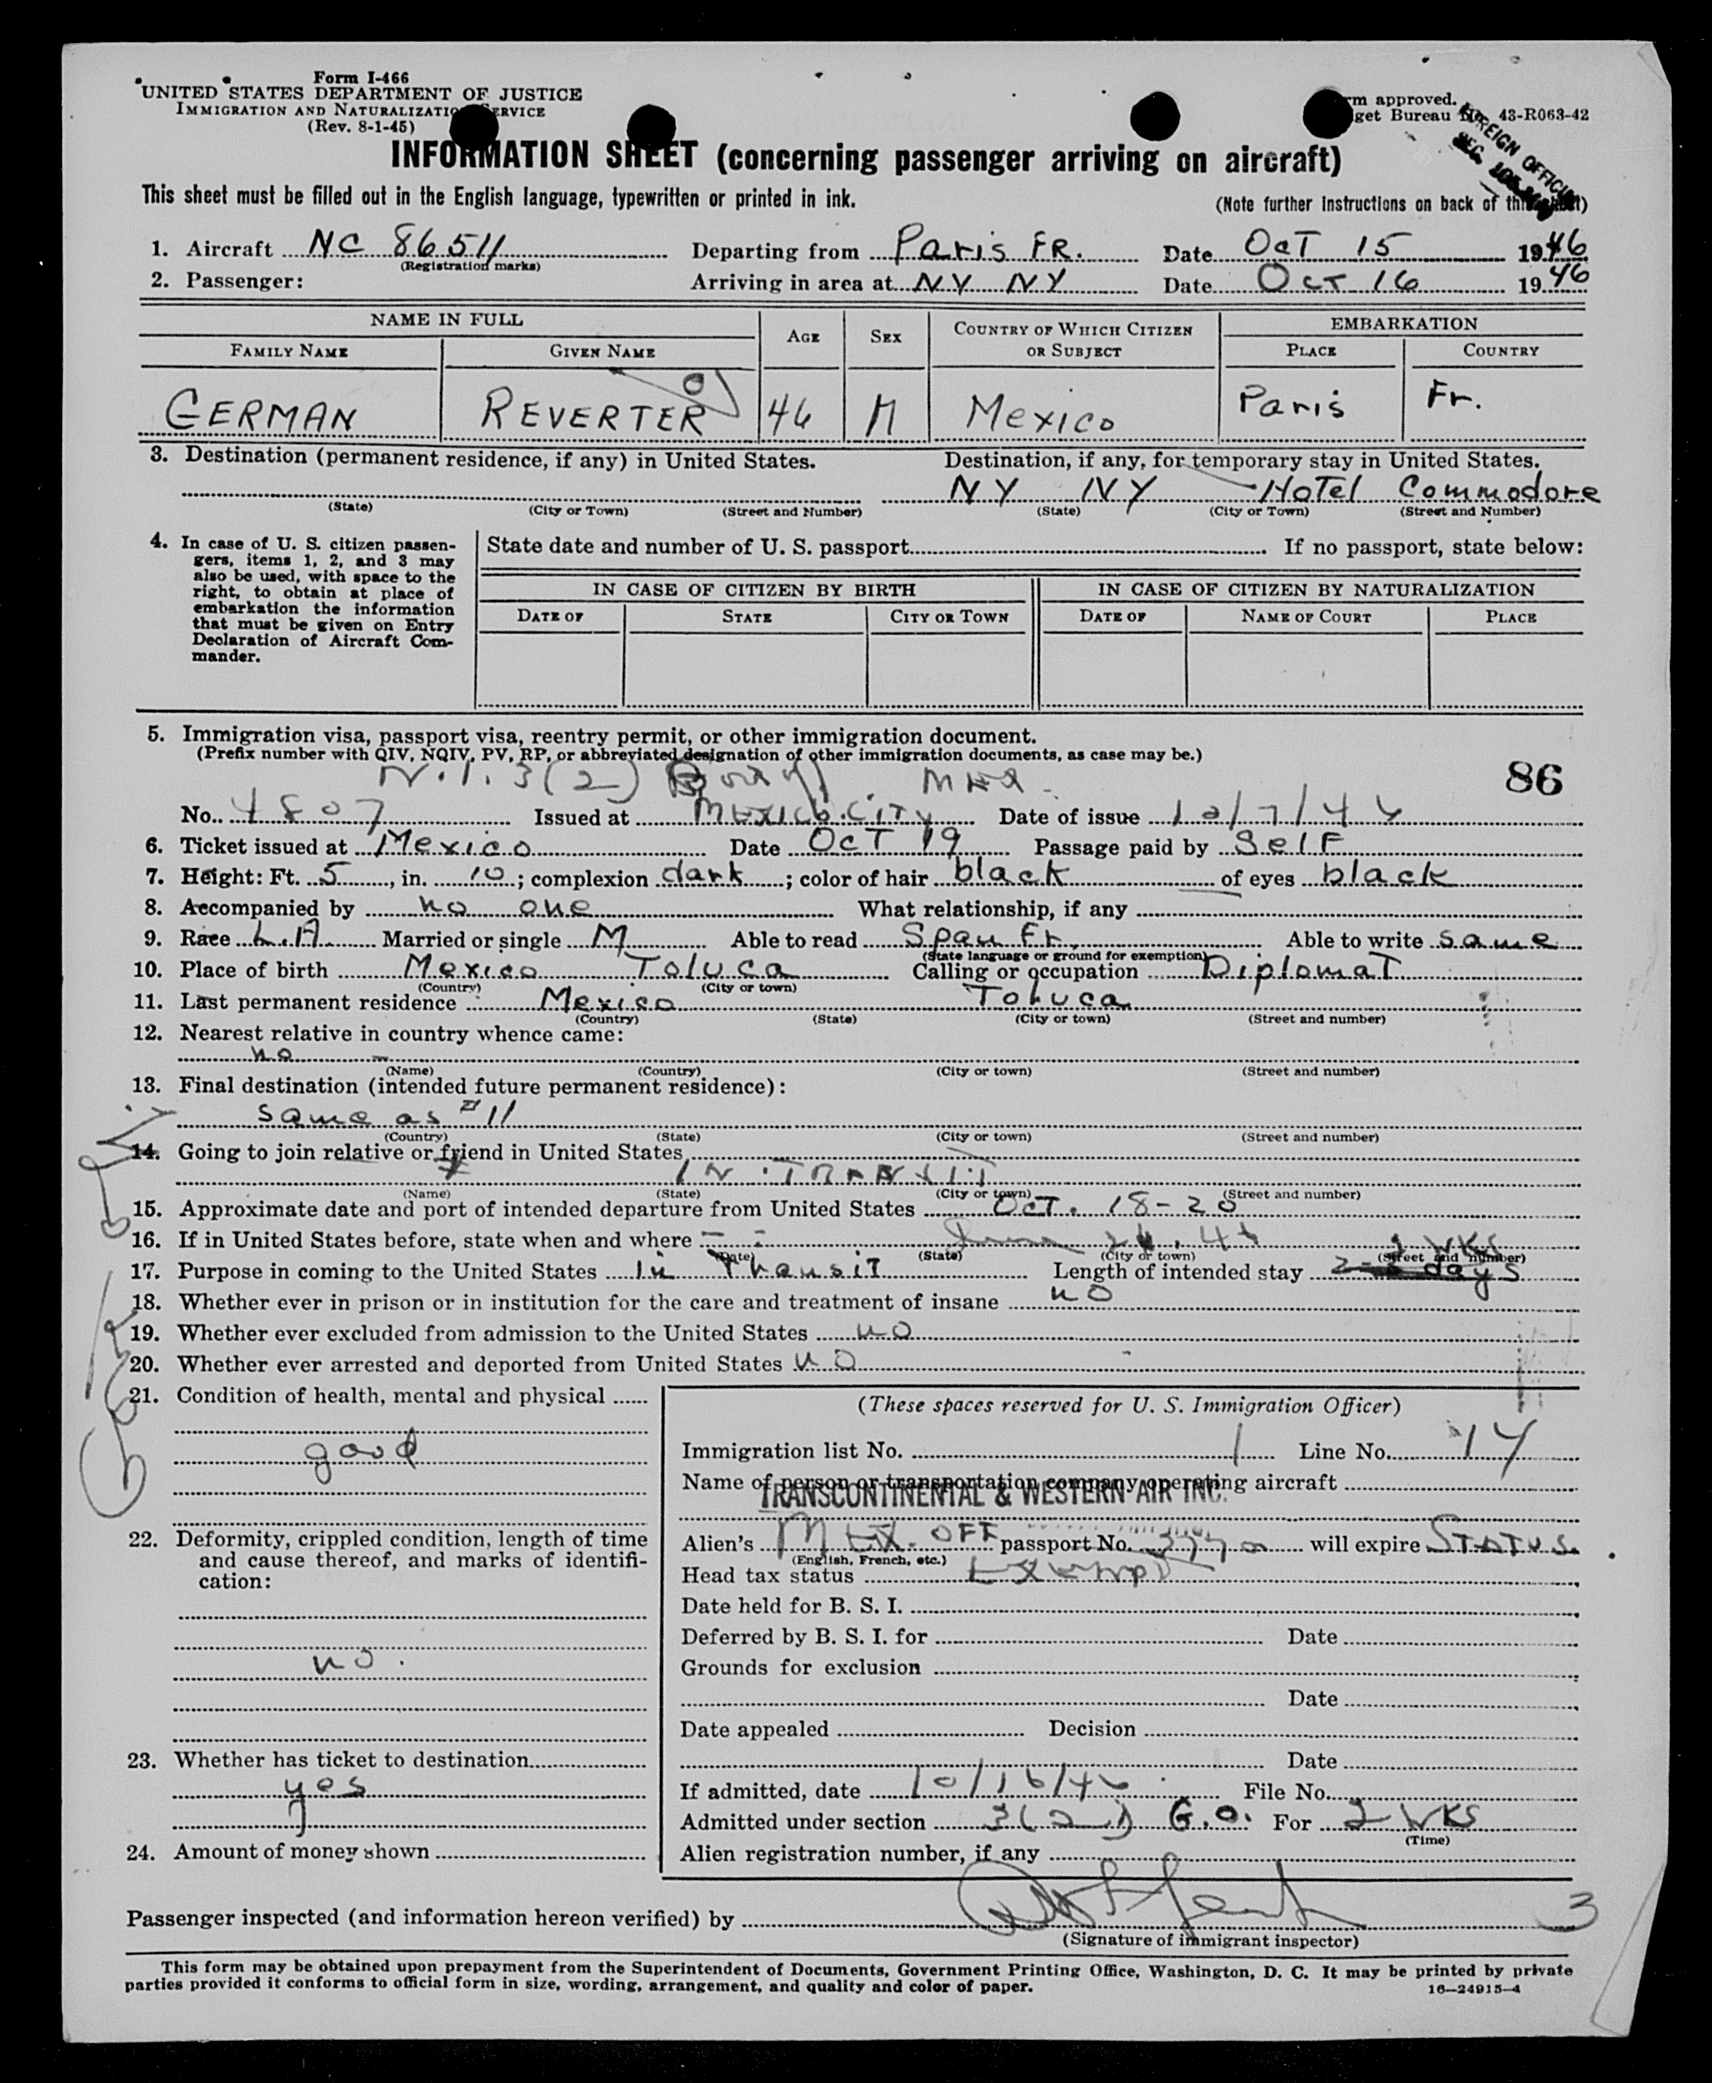 Form I-466
UNITED STATES DEPARTMENT OF JUSTICE
IMMIGRATION AND NATURALIZATION SERVICE
(Rev. 8-1-45)
Form approved.
Budget Bureau No. 43-R063-42
FOREIGN OFFICIAL
INFORMATION SHEET (concerning passenger arriving on aircraft)
This sheet must be filled out in the English language, typewritten or printed in ink.
(Note further instructions on back of this sheet)
1. Aircraft NC 86511 Departing from Paris FR. Date OcT 15 1946
(Registration marks)
2. Passenger: Arriving in area at NY NY Date OcT 16 1946
NAME IN FULL AGE SEX COUNTRY OF WHICH CITIZEN OR SUBJECT EMBARKATION
FAMILY NAME GIVEN NAME PLACE COUNTRY
GERMAN REVERTER 46 M Mexico Paris Fr.
3. Destination (permanent residence, if any) in United States. Destination, if any, for temporary stay in United States.
NY NY HoTel Commodore
(State) (City or Town) (Street and Number) (State) (City or Town) (Street and Number)
4. In case of U. S. citizen passengers, items 1, 2, and 3 may also be used, with space to the right, to obtain at place of embarkation the information that must be given on Entry Declaration of Aircraft Commander.
State date and number of U. S. passport If no passport, state below:
IN CASE OF CITIZEN BY BIRTH IN CASE OF CITIZEN BY NATURALIZATION
DATE OF STATE CITY OR TOWN DATE OF NAME OF COURT PLACE
5. Immigration visa, passport visa, reentry permit, or other immigration document.
(Prefix number with QIV, NQIV, PV, RP, or abbreviated designation of other immigration documents, as case may be.)
86
N.I. 3(2) MEX.
No. 4807 Issued at MEXICO.CITY Date of issue
6. Ticket issued at Mexico Date OcT 19 Passage paid by SelF
7. Height: Ft. 5, in. 10; complexion dark; color of hair black of eyes black
8. Accompanied by no one What relationship, if any
9. Race L.A. Married or single M Able to read Span Fr. Able to write same
(State language or ground for exemption)
10. Place of birth Mexico Toluca Calling or occupation DiplomaT
(Country) (City or town)
11. Last permanent residence Mexico Toluca
(Country) (State) (City or town) (Street and number)
12. Nearest relative in country whence came:
no
(Name) (Country) (City or town) (Street and number)
13. Final destination (intended future permanent residence):
same as #11
(Country) (State) (City or town) (Street and number)
14. Going to join relative or friend in United States
IN TRANSIT
(Name) (State) (City or town) (Street and number)
15. Approximate date and port of intended departure from United States OcT. 18-20
16. If in United States before, state when and where
(Date) (State) (City or town) (Street and number)
2 WKS
17. Purpose in coming to the United States In Transit Length of intended stay days
18. Whether ever in prison or in institution for the care and treatment of insane no
19. Whether ever excluded from admission to the United States no
20. Whether ever arrested and deported from United States no
21. Condition of health, mental and physical
good
(These spaces reserved for U. S. Immigration Officer)
Immigration list No. 1 Line No. 14
Name of person or transportation company operating aircraft
TRANSCONTINENTAL & WESTERN AIR INC.
22. Deformity, crippled condition, length of time and cause thereof, and marks of identification:
no.
Alien's MEX. OFF passport No. will expire STATUS.
(English, French, etc.)
Head tax status Exempt
Date held for B. S. I.
Deferred by B. S. I. for Date
Grounds for exclusion
Date
Date appealed Decision
23. Whether has ticket to destination
yes
Date
If admitted, date 10/16/46 File No.
Admitted under section 3(2) G.O. For 2 WKS
(Time)
24. Amount of money shown
Alien registration number, if any
Passenger inspected (and information hereon verified) by
3
(Signature of immigrant inspector)
This form may be obtained upon prepayment from the Superintendent of Documents, Government Printing Office, Washington, D. C. It may be printed by private
parties provided it conforms to official form in size, wording, arrangement, and quality and color of paper.
16—24915-4